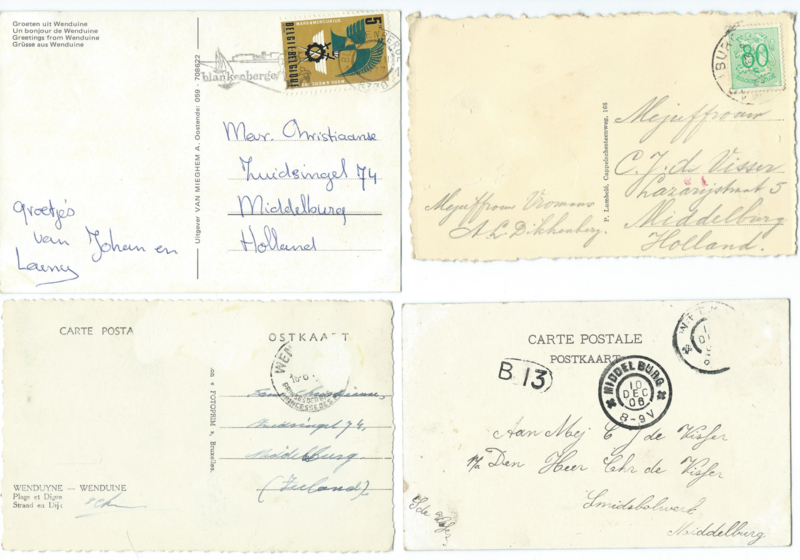 Groeten uit Wenduine
Un bonjour de Wenduine
Greetings from Wenduine
Grüsse aus Wenduine
blankenberge
5F
BELGIE-BELGIQUE
Uitgever VAN MIEGHEM A. Oostende: 059 - 708622
Mar. Christiaanse
Zuidsingel 74
Middelburg
Holland
Groetjes
van Johan en
80
P. Lambolé, Cappelschesteenweg, 166
Mejuffrouw
C. J. de Visser
Lazarijstraat 5
Middelburg
Holland.
Mejuffrouw Vromans
A. L. Dikkenberg.
CARTE POSTA
OSTKAART
WEN
PRINSESSEDES
Uitg. FOTOPRIM, Bruxelles.
74,
Middelburg
(Zeeland)
WENDUYNE — WENDUINE
Plage et Digue
Strand en Dijk
CARTE POSTALE
POSTKAART
B 13
MIDDELBURG
10
DEC
06
8-9V
Aan Mej C J de Visser
p/a Den Heer Chr de Visser
Smidsbolwerk
Middelburg